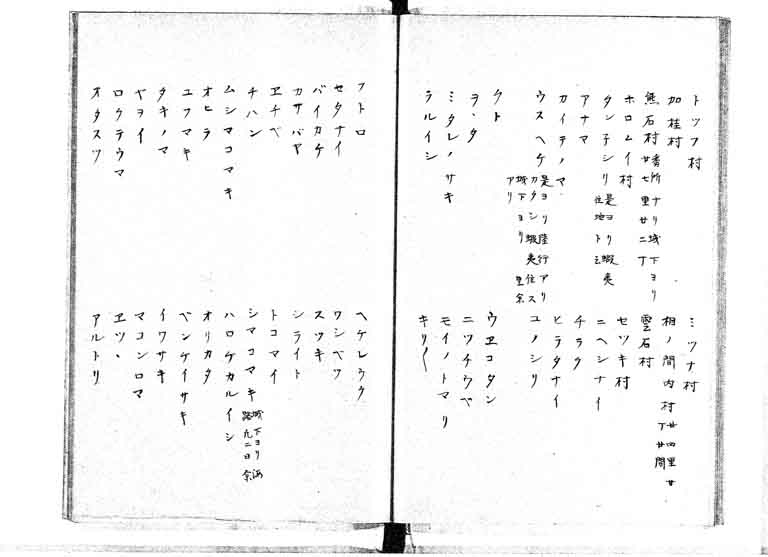 トツフ村
ミツナ村
加桂村
相ノ間内村 廿四里廿丁廿間
熊石村 番所ナリ城下ヨリ廿七里廿二丁
雲石村
ホロムイ村
セツキ村
タン子シリ 是ヨリ蝦夷住地ト云
ニヘシナイ
アナマ
チラク
カイテノマ
ヒラタナイ
ウスヘケ 是ヨリ陸行アリカタシ蝦夷住ス城下ヨリ里余アリ
ユノシリ
クト
ウヱコタン
ヲヽタ
ニツチウベ
ミタレノサキ
モイノトマリ
ラルイシ
キリ〱
フトロ
ヘケレウク
セタナイ
ワシベツ
バイカケ
スツキ
カサバヤ
シライト
ヱチベ
トコマイ
チハン
シマコマキ 城下ヨリ海路九二日余
ムシマコマキ
ハロケカルイシ
オヒラ
オリカタ
ユフマキ
ベンケイサキ
タキノマ
イワサキ
ヤヨイ
マコンロマ
ロクテウマ
ヱツヽ
オタスツ
アルトリ